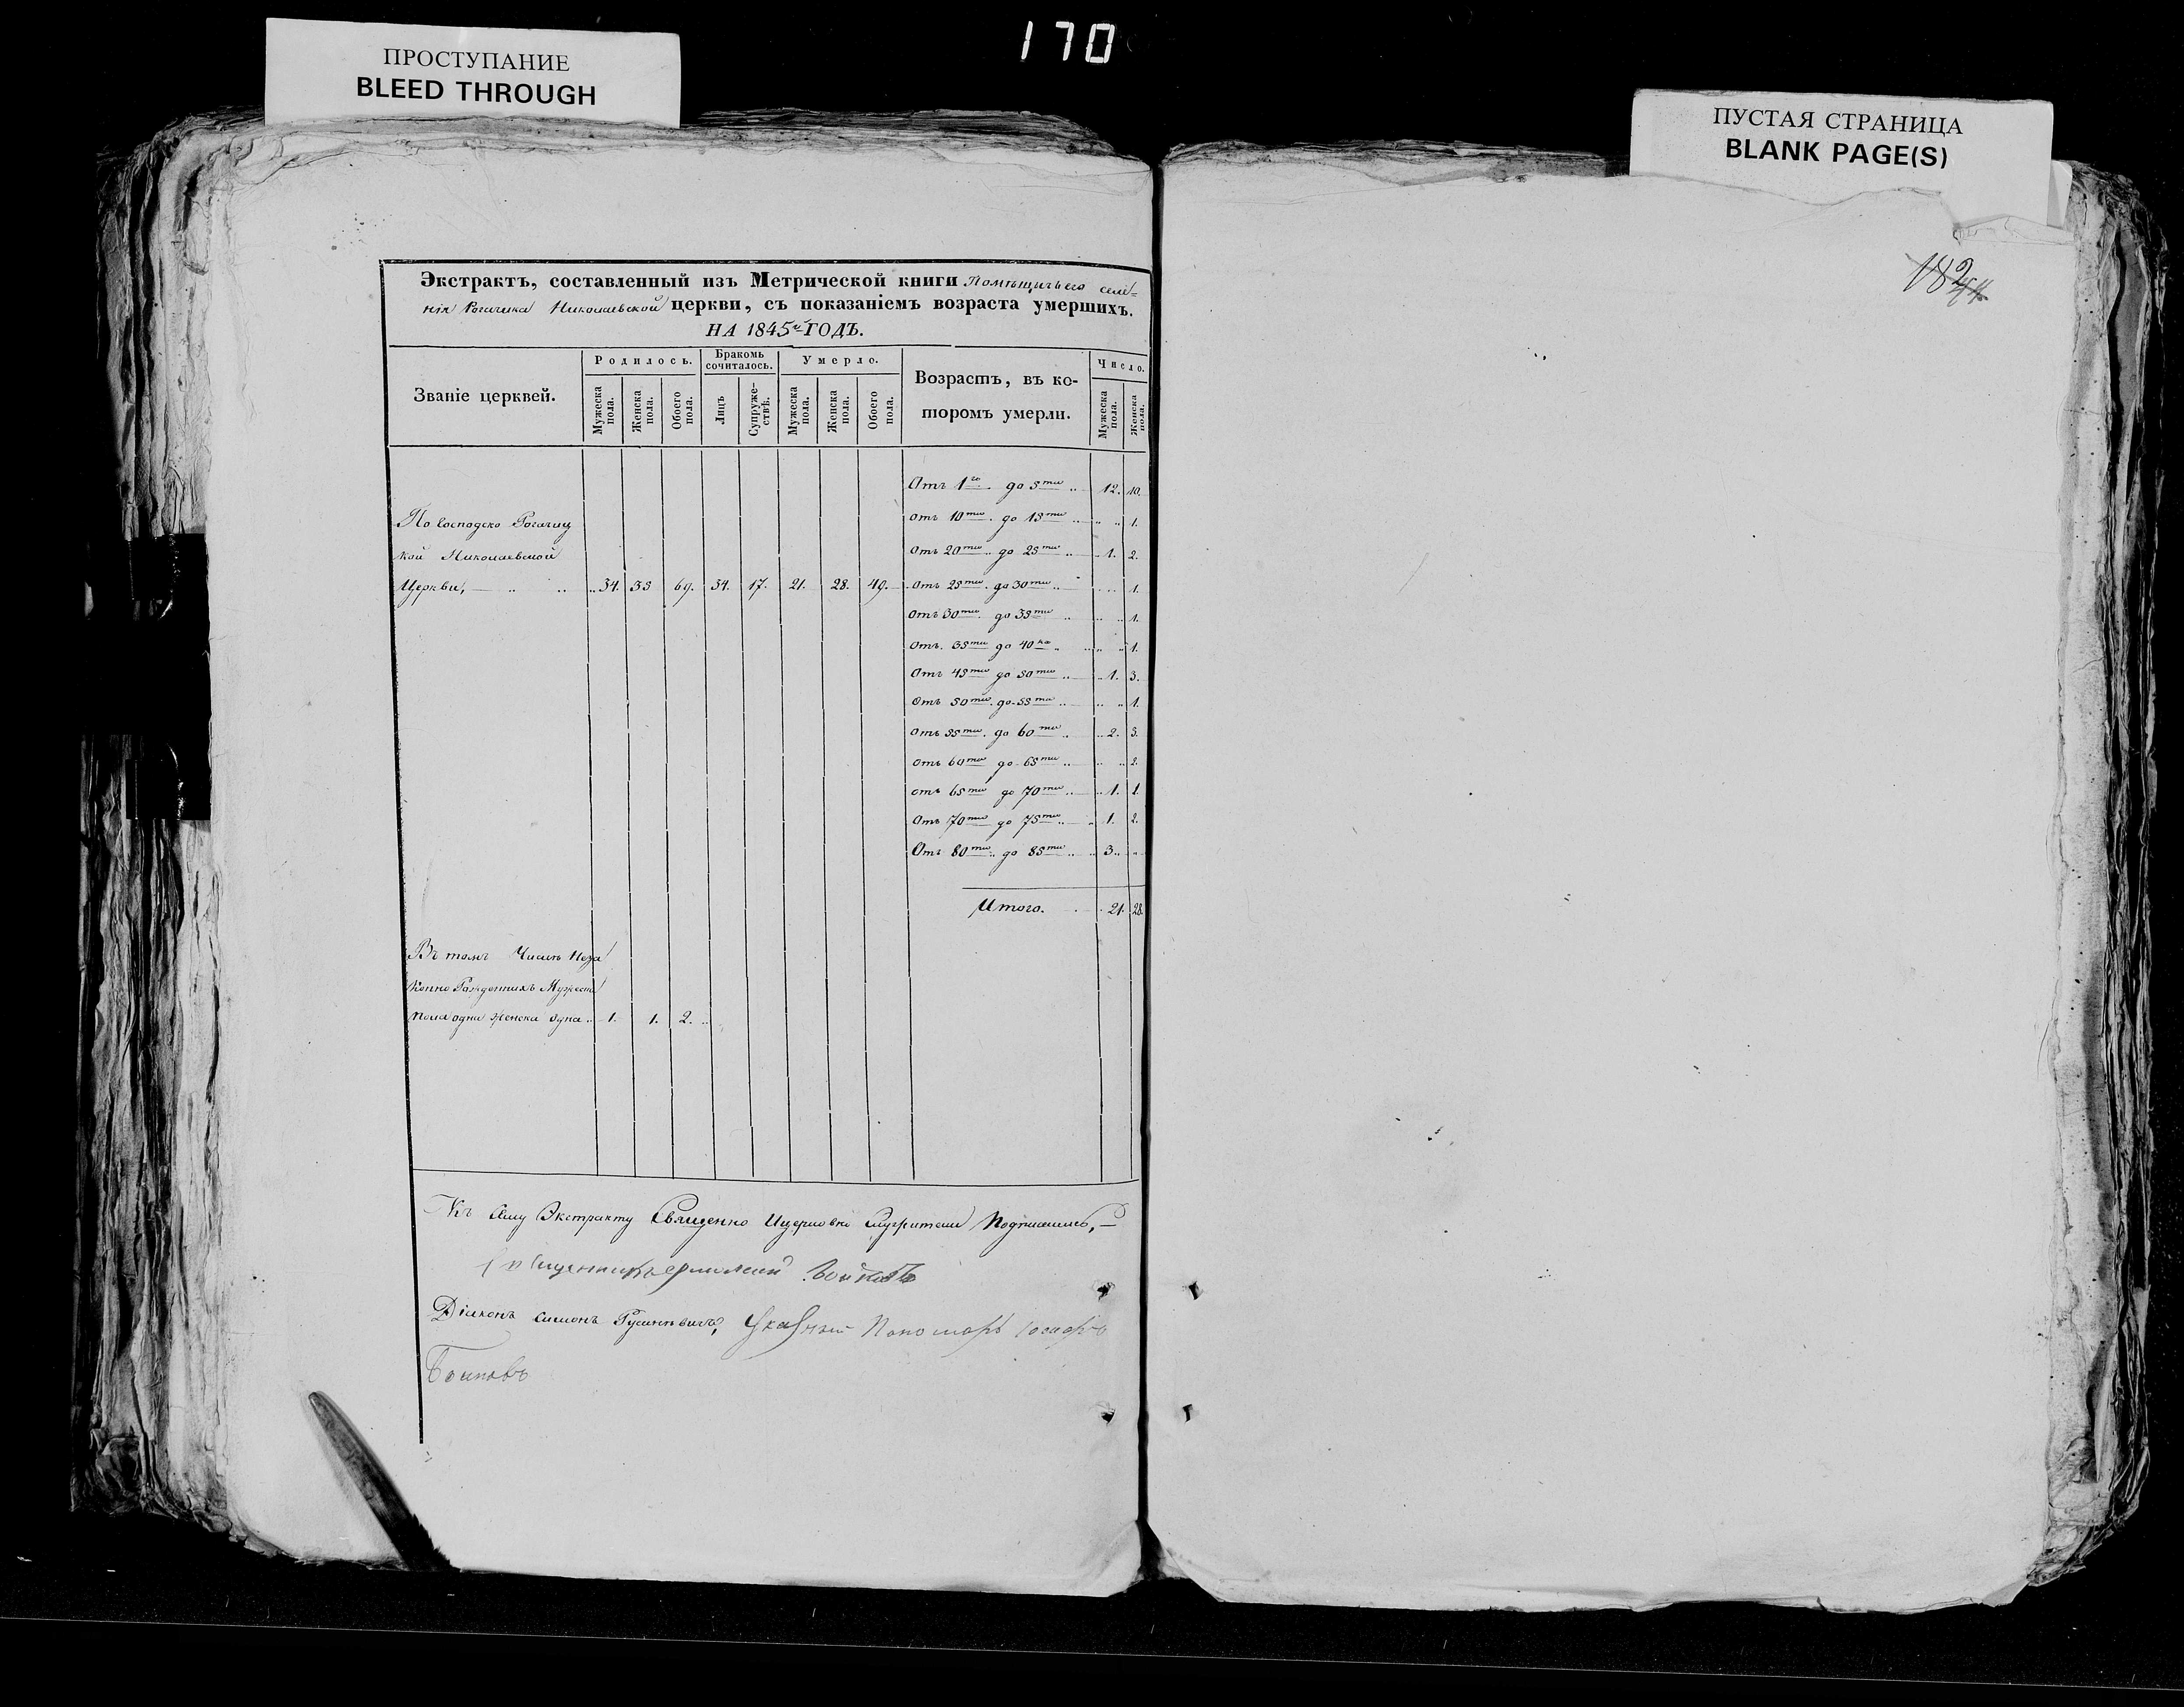 170
ПРОСТУПАНИЕ
BLEED THROUGH
ПУСТАЯ СТРАНИЦА
BLANK PAGE(S)
182
Экстрактъ, составленный изъ Метрической книги Помѣщичьего селе=
нія Рогачика Николаевской церкви, съ показаніемъ возраста умершихъ.
НА 1845й ГОДЪ.
Званіе церквей.
Родилось.
Бракомъ сочиталось.
Умерло.
Возрастъ, въ ко-
торомъ умерли.
Число.
Мужеска пола.
Женска пола.
Обоего пола.
Лицъ
Супруже-ствѣ.
Мужеска пола.
Женска пола.
Обоего пола.
Мужеска пола.
Женска пола.
Отъ 1го до 5ти .. 12. 10.
По Господско Рогачиц
отъ 10ти. до 15ти .. „ „ 1.
кой Николаевской
Отъ 20ти.. до 25ти .. 1. 2.
Церкви, — „ .. ..34. 35 69. 34. 17. 21. 28. 49. Отъ 25ти. до 30ти .. .. 1.
Отъ 30ти. до 35ти .. .. .. 1.
Отъ. 35ти до 40ка „ „ „ 1.
Отъ 45ти до 50ти .. 1. 3.
Отъ 50ти. до 55ти .. .. „ 1.
Отъ 55ти. до 60ти .. 2. 3.
Отъ 60ти до 65ти .. .. .. 2.
отъ 65ти до 70ти .. 1. 1.
Отъ 70ти до 75ти .. 1. 2.
Отъ 80ти.. до 85ти .. 3.. „
Итого. 21. 28.
Въ томъ Числѣ Неза
конно Рожденныхъ Мужеска
пола одна женска одна .. 1. 1. 2. ..
Къ Сему Экстракту Священно Церковно Служители Подписались, —
Священникъ Войновъ
Діяконъ Симонъ Указный Пономарь